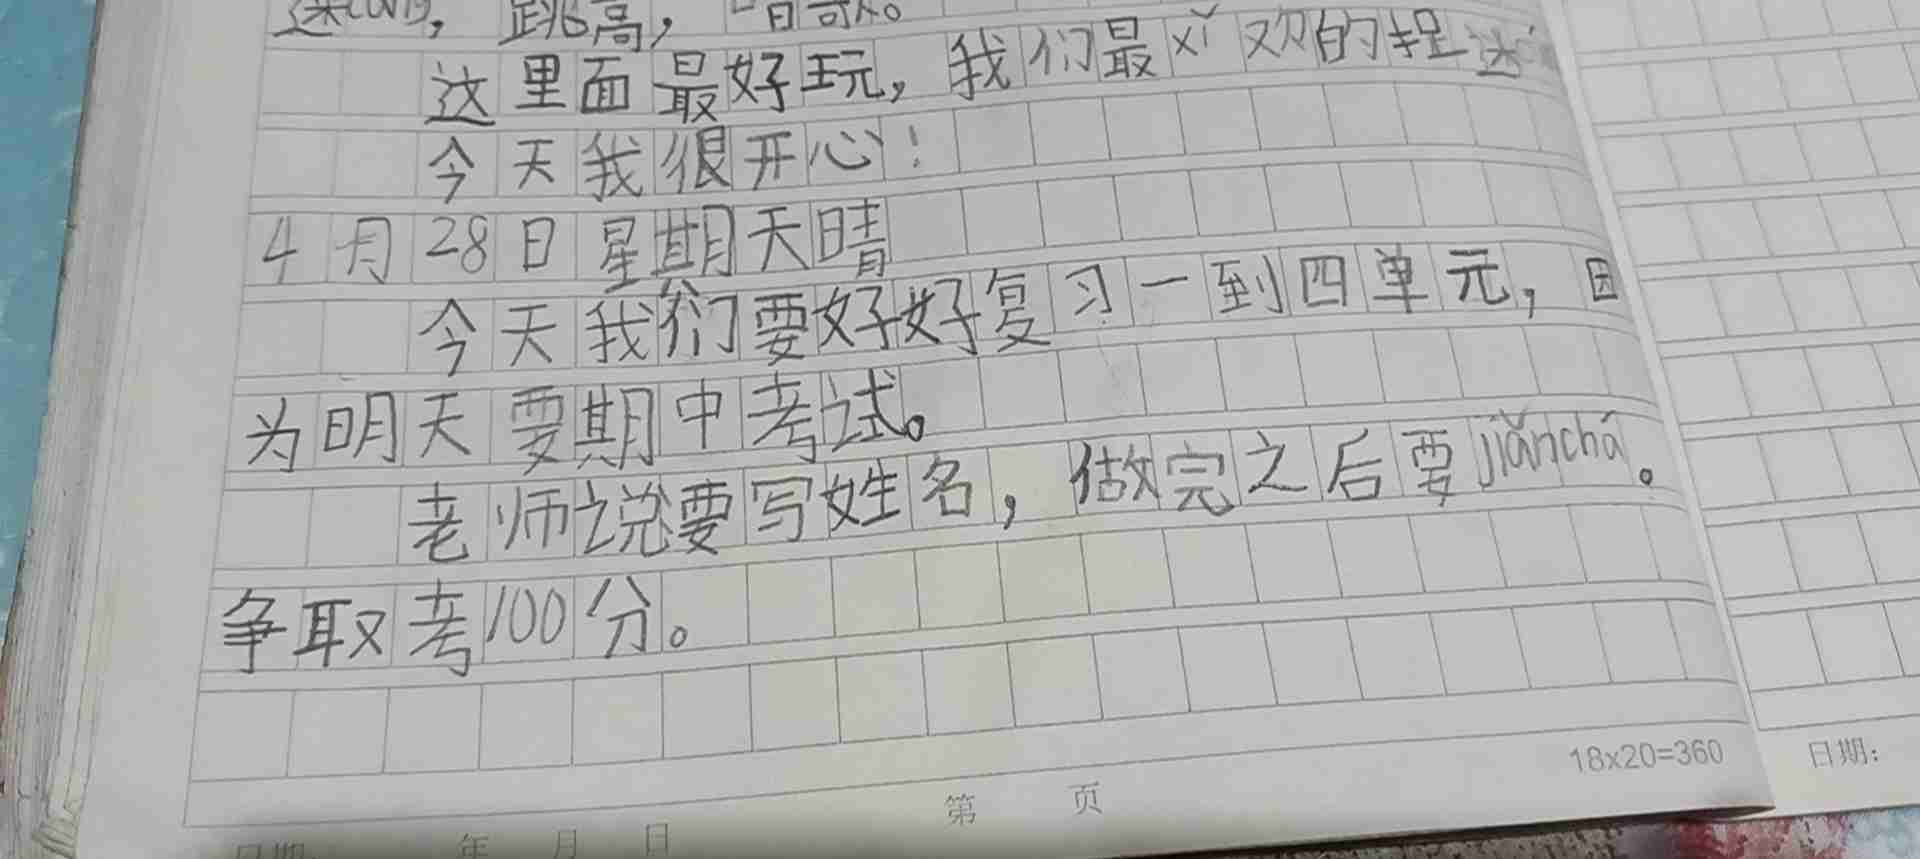 迷cáng，跳高，唱歌。
这里面最好玩，我们最xǐ欢的是迷
今天我很开心！
4月28日星期天晴
今天我们要好好复习一到四单元，因
为明天要期中考试。
老师说要写姓名，做完之后要jiǎnchá。
争取考100分。
18x20=360
第 页
日期：
日期 年 月 日